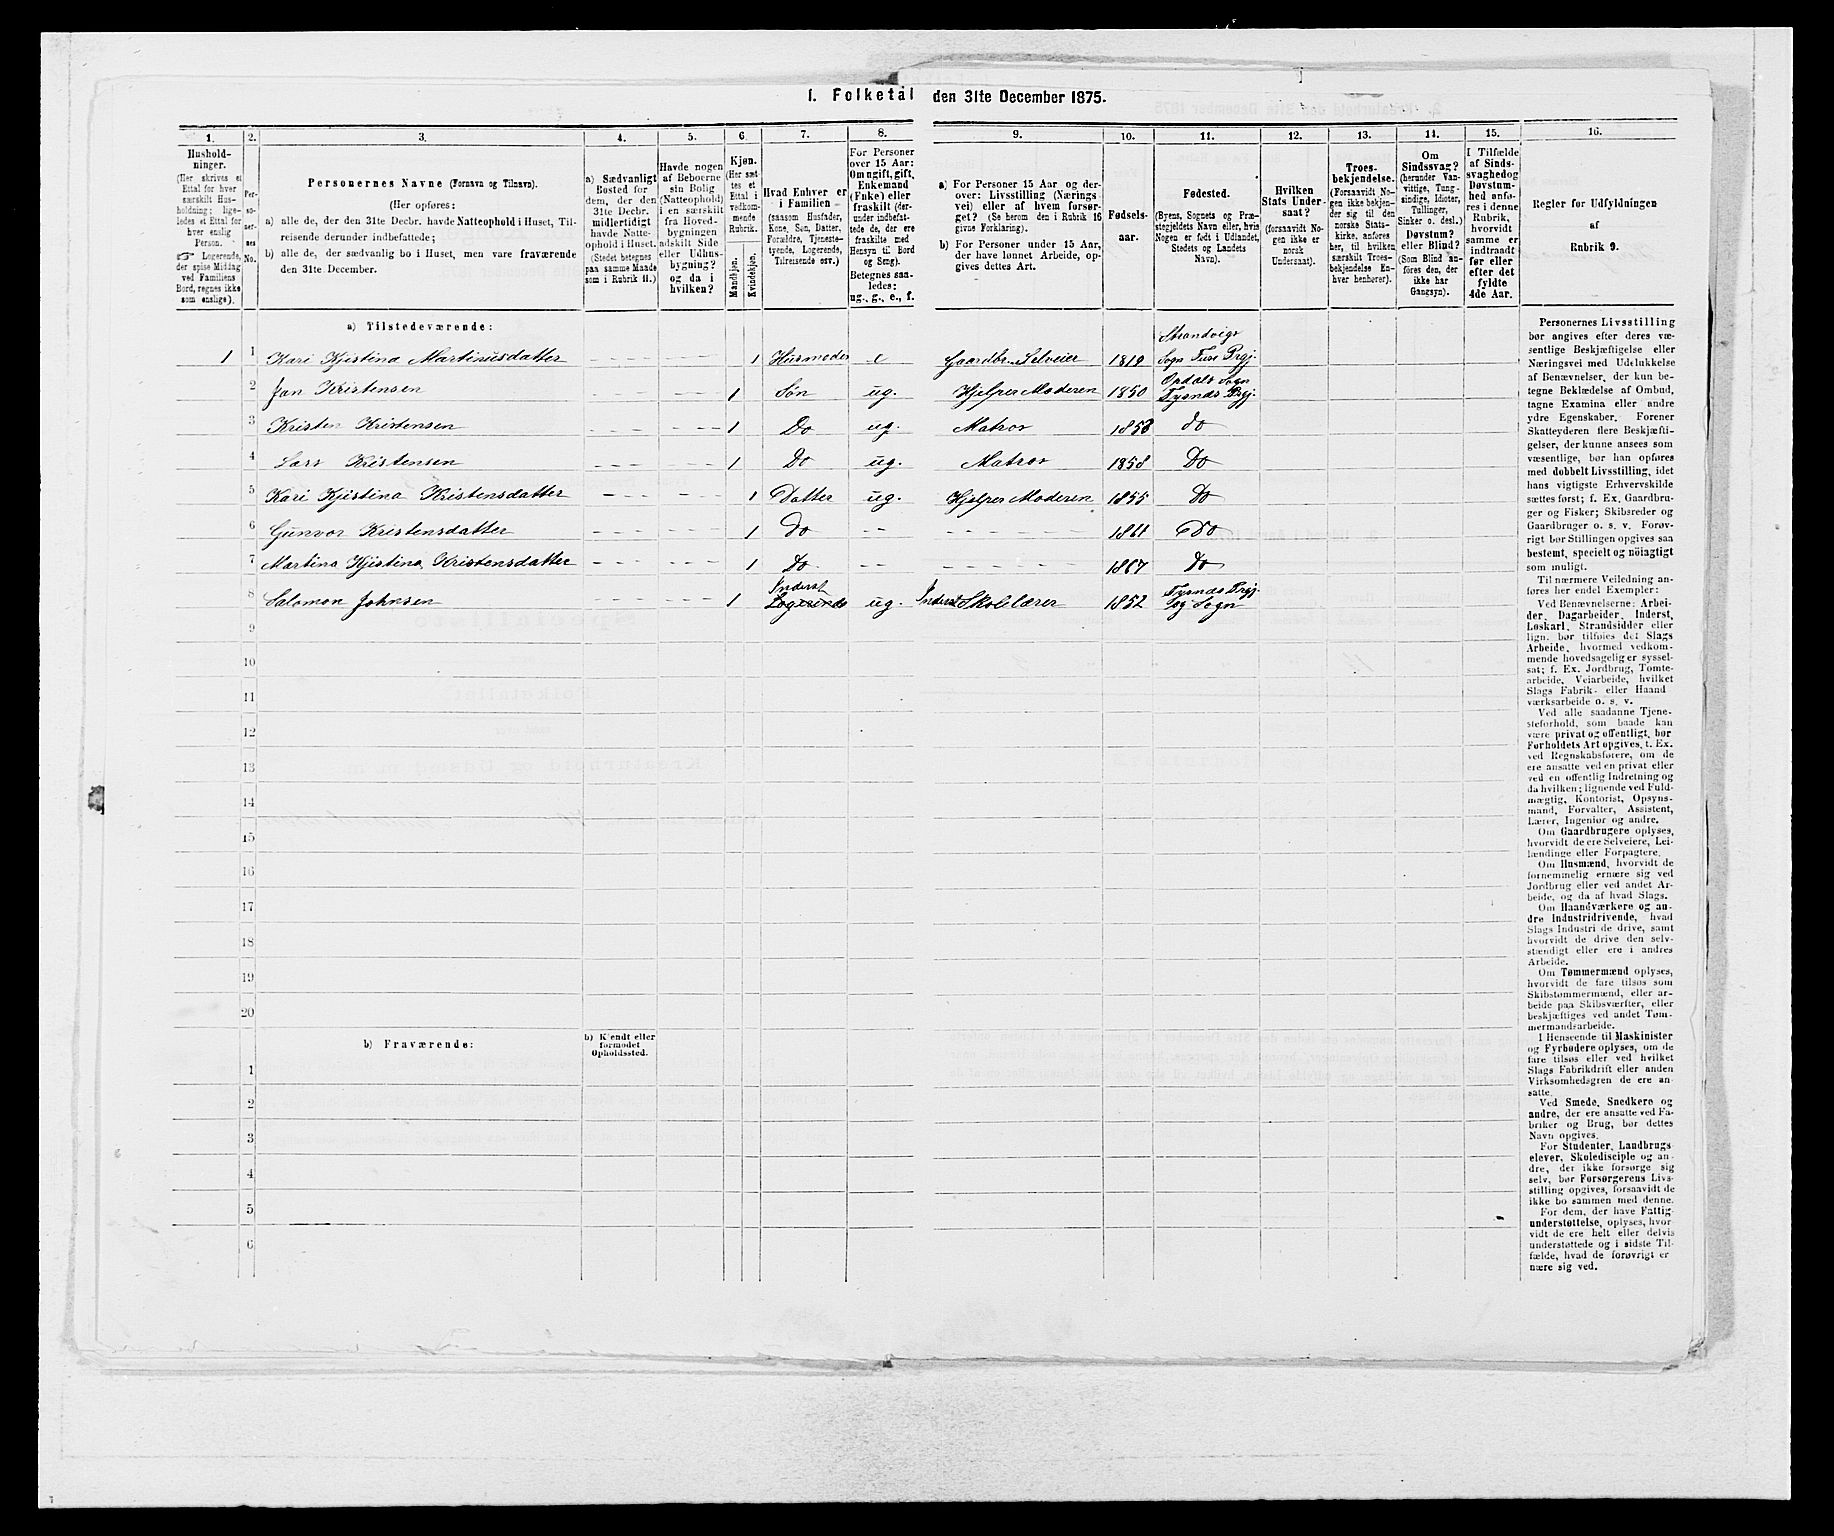 1. Folketal den 31te December 1875.
1. 2. 3. 4. 5. 6. 7. 8. 9. 10. 11. 12. 13. 14. 15. 16.
Hushold-
ninger.
(Her skrives et
Ettal for hver
særskilt Hus-
holdning; lige-
ledes et Ettal for
hver enslig
Person.
☞ Logerende,
der spise Middag
ved Familiens
Bord, regnes ikke
som enslige).
Per-
so-
ner-
nes
No.
Personernes Navne (Fornavn og Tilnavn).
(Her opføres:
a) alle de, der den 31te Decbr. havde Natteophold i Huset, Til-
reisende derunder indbefattede;
b) alle de, der sædvanlig bo i Huset, men vare fraværende
den 31te December.
a) Sædvanligt
Bosted for
dem, der den
31te Decbr.
midlertidigt
havde Natte-
ophold i Huset.
(Stedet betegnes
paa samme Maade
som i Rubrik 11.)
Havde nogen
af Beboerne
sin Bolig
(Natteophold)
i en særskilt
fra Hoved-
bygningen
adskilt Side
eller Udhus-
bygning?
og da i
hvilken?
Kjøn.
(Her sæt-
tes et
Ettal i
vedkom-
mende
Rubrik.
Mandkjøn.
Kvindekjøn.
Hvad Enhver er
i Familien
(saasom Husfader,
Kone, Søn, Datter,
Forældre, Tjeneste-
tyende, Logerende,
Tilreisende osv.)
For Personer
over 15 Aar:
Om ugift, gift,
Enkemand
(Enke) eller
fraskilt (der-
under indbefat-
tede de, der ere
fraskilte med
Hensyn til Bord
og Seng).
Betegnes saa-
ledes:
ug., g., e., f.
a) For Personer 15 Aar og der-
over: Livsstilling (Nærings-
vei) eller af hvem forsør-
get? (Se herom den i Rubrik 16
givne Forklaring).
b) For Personer under 15 Aar,
der have lønnet Arbeide, op-
gives dettes Art.
Fødsels-
aar.
Fødested.
(Byens, Sognets og Præ-
stegjeldets Navn eller, hvis
Nogen er født i Udlandet,
Stedets og Landets
Navn).
Hvilken
Stats Under-
saat?
(forsaavidt No-
gen ikke er
norsk
Undersaat).
Troes-
bekjendelse.
(Forsaavidt No-
gen ikke bekjen-
der sig til den
norske Stats-
kirke, anføres
her, til hvilken
særskilt Troes-
bekjendelse En-
hver henhører).
Om
Sindssvag?
(herunder Van-
vittige, Tung-
sindige, Idioter,
Tullinger,
Sinker o. desl.)
Døvstum?
eller Blind?
(Som Blind an-
føres den, der
ikke har
Gangsyn).
I Tilfælde
af Sinds-
svaghed og
Døvstum-
hed anfø-
res i denne
Rubrik,
hvorvidt
samme er
indtraadt
før eller
efter det
fyldte
4de Aar.
Regler for Udfyldningen
af
Rubrik 9.
a) Tilstedeværende:
Strandvigs
1 1 Kari Kjistina Martinusdatter 1 Husmoder e Gaardbr. Selveier 1819 Sogn Fuse Prgj.
Opdals Sogn
2 Jan Kristensen 1 Søn ug. Hjelper Moderen 1850 Tysnæs Prgj.
3 Kristen Kristensen 1 Do ug. Matros 1853 do
4 Lars Kristensen 1 Do ug. Matros 1858 Do
5 Kari Kjistina Kristensdatter 1 Datter ug. Hjelper Moderen 1855 Do
6 Gunvor Kristensdatter 1 Do 1861 Do
7 Martina Kjistina Kristensdatter 1 Do 1867 Do
Inderst Tysnæs Prgj.
8 Salomon Johnsen 1 Logerende ug. Inderst Skolelærer 1852 og Sogn
9
10
11
12
13
14
15
16
17
18
19
20
b) Fraværende:
b) Kjendt eller
formodet
Opholdssted.
1
2
3
4
5
6
Personernes Livsstilling
bør angives efter deres væ-
sentlige Beskjæftigelse eller
Næringsvei med Udelukkelse
af Benævnelser, der kun be-
tegne Beklædelse af Ombud,
tagne Examina eller andre
ydre Egenskaber. Forener
Skatteyderen flere Beskjæfti-
gelser, der kunne ansees som
væsentlige, bør han opføres
med dobbelt Livsstilling, idet
hans vigtigste Erhvervskilde
sættes først; f. Ex. Gaardbru-
ger og Fisker; Skibsreder og
Gaardbruger o. s. v. Forøv-
rigt bør Stillingen opgives saa
bestemt, specielt og nøiagtigt
som muligt.
Til nærmere Veiledning an-
føres her endel Exempler:
Ved Benævnelserne: Arbei-
der, Dagarbeider, Inderst,
Løskarl, Strandsidder eller
lign. bør tilføies det Slags
Arbeide, hvormed vedkom-
mende hovedsagelig er syssel-
sat; f. Ex. Jordbrug, Tomte-
arbeide, Veiarbeide, hvilket
Slags Fabrik- eller Haand-
værksarbeide o. s. v.
Ved alle saadanne Tjene-
steforhold, som baade kan
være privat og offentligt, bør
Forholdets Art opgives. t. Ex.
ved Regnskabsførere, om de
ere ansatte ved en privat eller
ved en offentlig Indretning og
da hvilken; lignende ved Fuld-
mægtig, Kontorist, Opsyns-
mand, Forvalter, Assistent,
Lærer, Ingeniør og andre.
Om Gaardbrugere oplyses,
hvorvidt de ere Selveiere, Lei-
lændinge eller Forpagtere.
Om Husmænd, hvorvidt de
fornemmelig ernære sig ved
Jordbrug eller ved andet Ar-
beide, og da af hvad Slags.
Om Haandværkere og an-
dre Industridrivende, hvad
Slags Industri de drive, samt
hvorvidt de drive den selv-
stændigt eller ere i andres
Arbeide.
Om Tømmermænd oplyses,
hvorvidt de fare tilsøs som
Skibstømmermænd, eller ar-
beide paa Skibsværfter, eller
beskjæftiges ved andet Tøm-
mermandsarbeide.
I Henseende til Maskinister
og Fyrbødere oplyses, om de
fare tilsøs eller ved hvilket
Slags Fabrikdrift eller anden
Virksomhedsgren de ere an-
satte.
Ved Smede, Snedkere og
andre, der ere ansatte ved Fa-
briker og Brug, bør dettes
Navn opgives.
For Studenter, Landbrugs-
elever, Skoledisciple og an-
dre, der ikke forsørge sig
selv, bør Forsørgerens Livs-
stilling opgives, forsaavidt de
ikke bo sammen med denne.
For dem, der have Fattig-
understøttelse, oplyses, hvor-
vidt de ere helt eller delvis
understøttede og i sidste Til-
fælde, hvad de forøvrigt er-
nære sig ved.